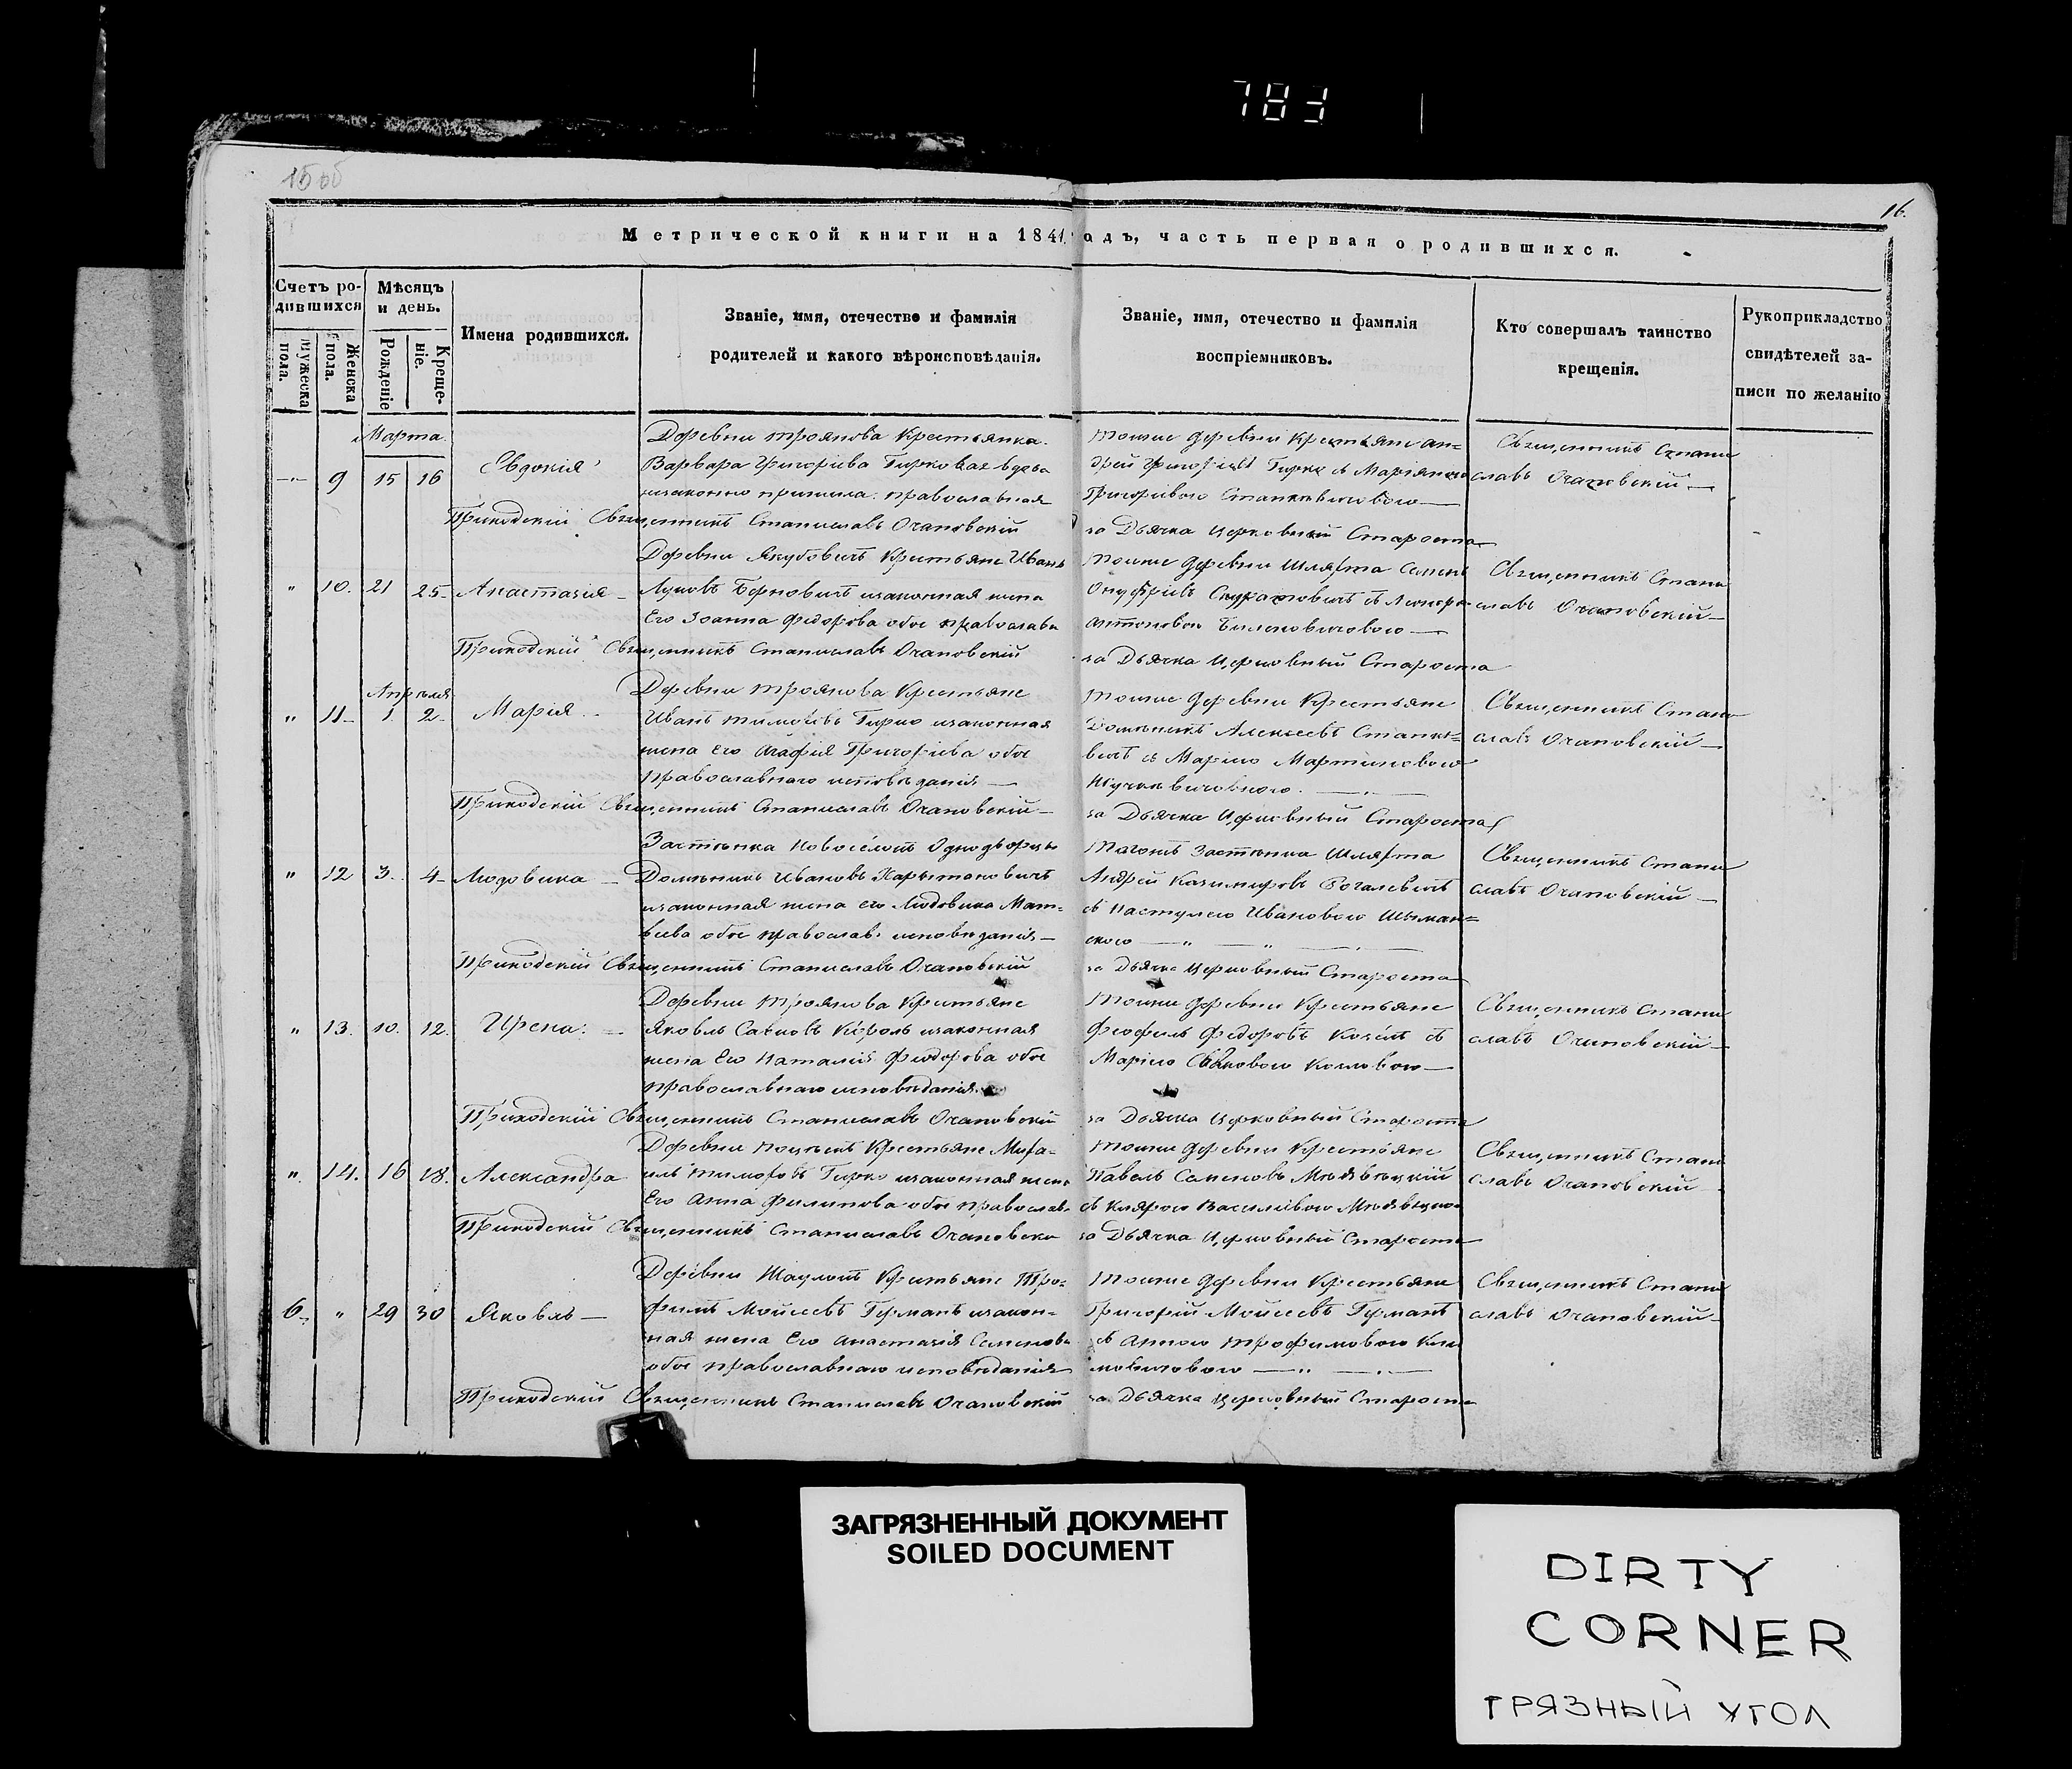 783
15 об
16.
Метрической книги на 1841 годъ, часть первая о родившихся.
Счетъ ро-
дившихся
Мужеска пола.
Женска пола.
Мѣсяцъ
и день.
Рожденіе
Креще-
ніе.
Имена родившихся.
Званіе, имя, отечество и фамилія
родителей и какого вѣроисповѣданія.
Званіе, имя, отечество и фамилія
воспріемниковъ.
Кто совершалъ таинство
крещенія.
Рукоприкладство
свидѣтелей за-
писи по желанію
Марта.
9 15 16 Евдокія
Деревни Троянова Крестьянка
Варвара Григорьева вдова
незаконно прижила. православная
Тоиже деревни Крестьяне Ан-
дрей
Григоріевою
Священникъ Стани
славъ Очановскій
Приходскій Священникъ Станиславъ Очановскій
за Дьячка Церковный Староста
" 10. 21 25 Анастазія
Деревни Якубовичъ Крестьяне Иванъ
законная жена
Его Іоанна Федорова обое православн
Тоиже деревни Шляхта Семенъ
Онуфріевъ
Антоновою
Священникъ Стани
славъ Очановскій
Приходскій Священникъ Станиславъ Очановскій
за Дьячка Церковный Староста
Апреля
" 11 1. 2 Марія
Деревни Троянова Крестьяне
Иванъ Тимофѣевъ Гирко законная
жена Его Агафія Григоріева обое
православнаго исповѣданія
Тоиже деревни Крестьяне
Доминикъ Алексеевъ Станке-
вичъ съ Маріею Мартиновою
Священникъ Стани
славъ Очановскій
Приходскій Священникъ Станиславъ Очановскій
за Дьячка Церковный Староста
" 12 3. 4 Людовика
Застѣнка Новосёлокъ Однодворцы
Доминикъ Ивановъ Харытоновичъ
законная жена его Людовика Мат-
вѣева обое православ: исповѣданія
Тогожъ Застѣнка Шляхта
Андрей Казимировъ Рогалевичъ
съ Настулею Ивановою Шыман-
скою
Священникъ Стани
славъ Очановскій
Приходскій Священникъ Станиславъ Очановскій
за Дьячка Церковный Староста
" 13. 10. 12. Ирена:
Деревни Троянова Крестьяне
Яковль Король законная
жена Его Наталія Феодорова обое
православнаго исповѣданія
Тоиже деревни Крестьяне
Феофиль Федоровъ Козёлъ съ
Маріею Козловою
Священникъ Стани
славъ Очановскій
Приходскій Священникъ Станиславъ Очановскій
за Дьячка Церковный Староста
" 14. 16 18. Александра
Деревни Крестьяне Миха-
илъ Тимофѣевъ Гирко законная жена
Его Анна Филипова обое православ.
Тоиже деревни Крестьяне
Павелъ Семеновъ
съ Клярою Василіевою
Священникъ Стани
славъ Очановскій
Приходскій Священникъ Станиславъ Очановски
за Дьячка Церковный Староста
6 " 29 30 Яковль
Деревни Крестьяне Тро-
фимъ Мойсеевъ Германъ закон-
ная жена Его Анастазія Семенова
обое православнаго исповѣданія
Тоиже деревни Крестьяне
Григорій Мойсеевъ Германъ
съ Анною Трофимовою Кли
мовичовою
Священникъ Стани
славъ Очановскій
Приходскій Священникъ Станиславъ Очановскій
за Дьячка Церковный Староста
ЗАГРЯЗНЕННЫЙ ДОКУМЕНТ
SOILED DOCUMENT
DIRTY
CORNER
ГРЯЗНЫЙ УГОЛ